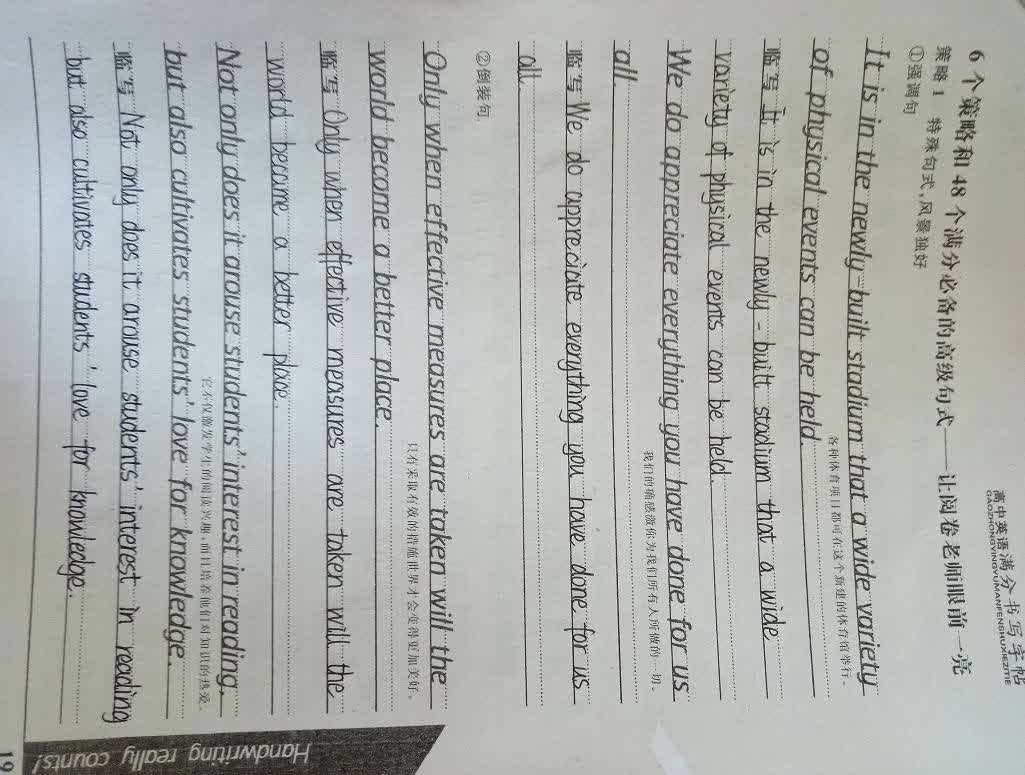 高中英语满分书写字帖
GAOZHONGYINGYUMANFENSHUXIEZITIE
6个策略和48个满分必备的高级句式——让阅卷老师眼前一亮
策略1 特殊句式,风景独好
①强调句
It is in the newly-built stadium that a wide variety
of physical events can be held.
各种体育项目都可在这个新建的体育馆举行。
临写 It is in the newly-built stadium that a wide
variety of physical events can be held.
We do appreciate everything you have done for us
all.
我们的确感激你为我们所有人所做的一切。
临写 We do appreciate everything you have done for us
all.
②倒装句
Only when effective measures are taken will the
world become a better place.
只有采取有效的措施世界才会变得更加美好。
临写 Only when effective measures are taken will the
world become a better place.
Not only does it arouse students' interest in reading,
but also cultivates students' love for knowledge.
它不仅激发学生的阅读兴趣,而且培养他们对知识的热爱。
临写 Not only does it arouse students' interest in reading
but also cultivates students' love for knowledge.
Handwriting really counts!
19